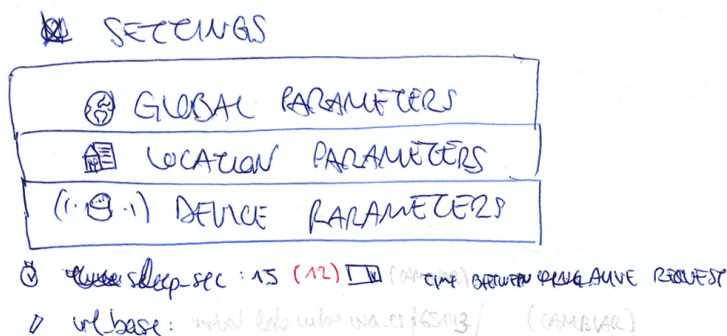 SETTINGS
GLOBAL PARAMETERS
LOCATION PARAMETERS
DEVICE PARAMETERS
sleep-sec : 15 (12) TIME BETWEEN ALIVE REQUEST
url_base: (CAMBIAR)